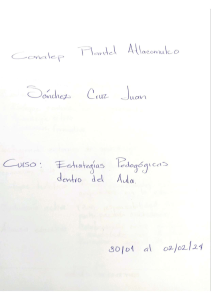 Conalep Plantel Atlacomulco
Sánchez Cruz Juan
Curso: Estrategias Pedagógicas
dentro del Aula
30/01 al 02/02/24